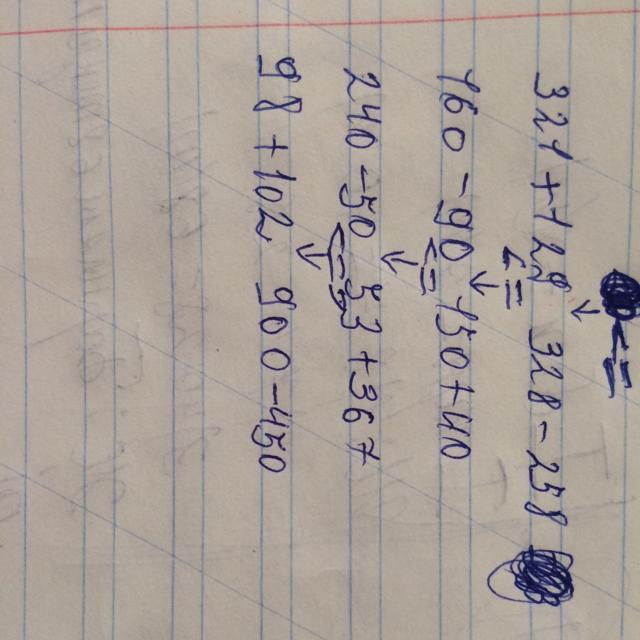 321 + 129 328 - 258
160 - 90 150 + 40
240 - 50 53 + 367
98 + 102 900 - 450